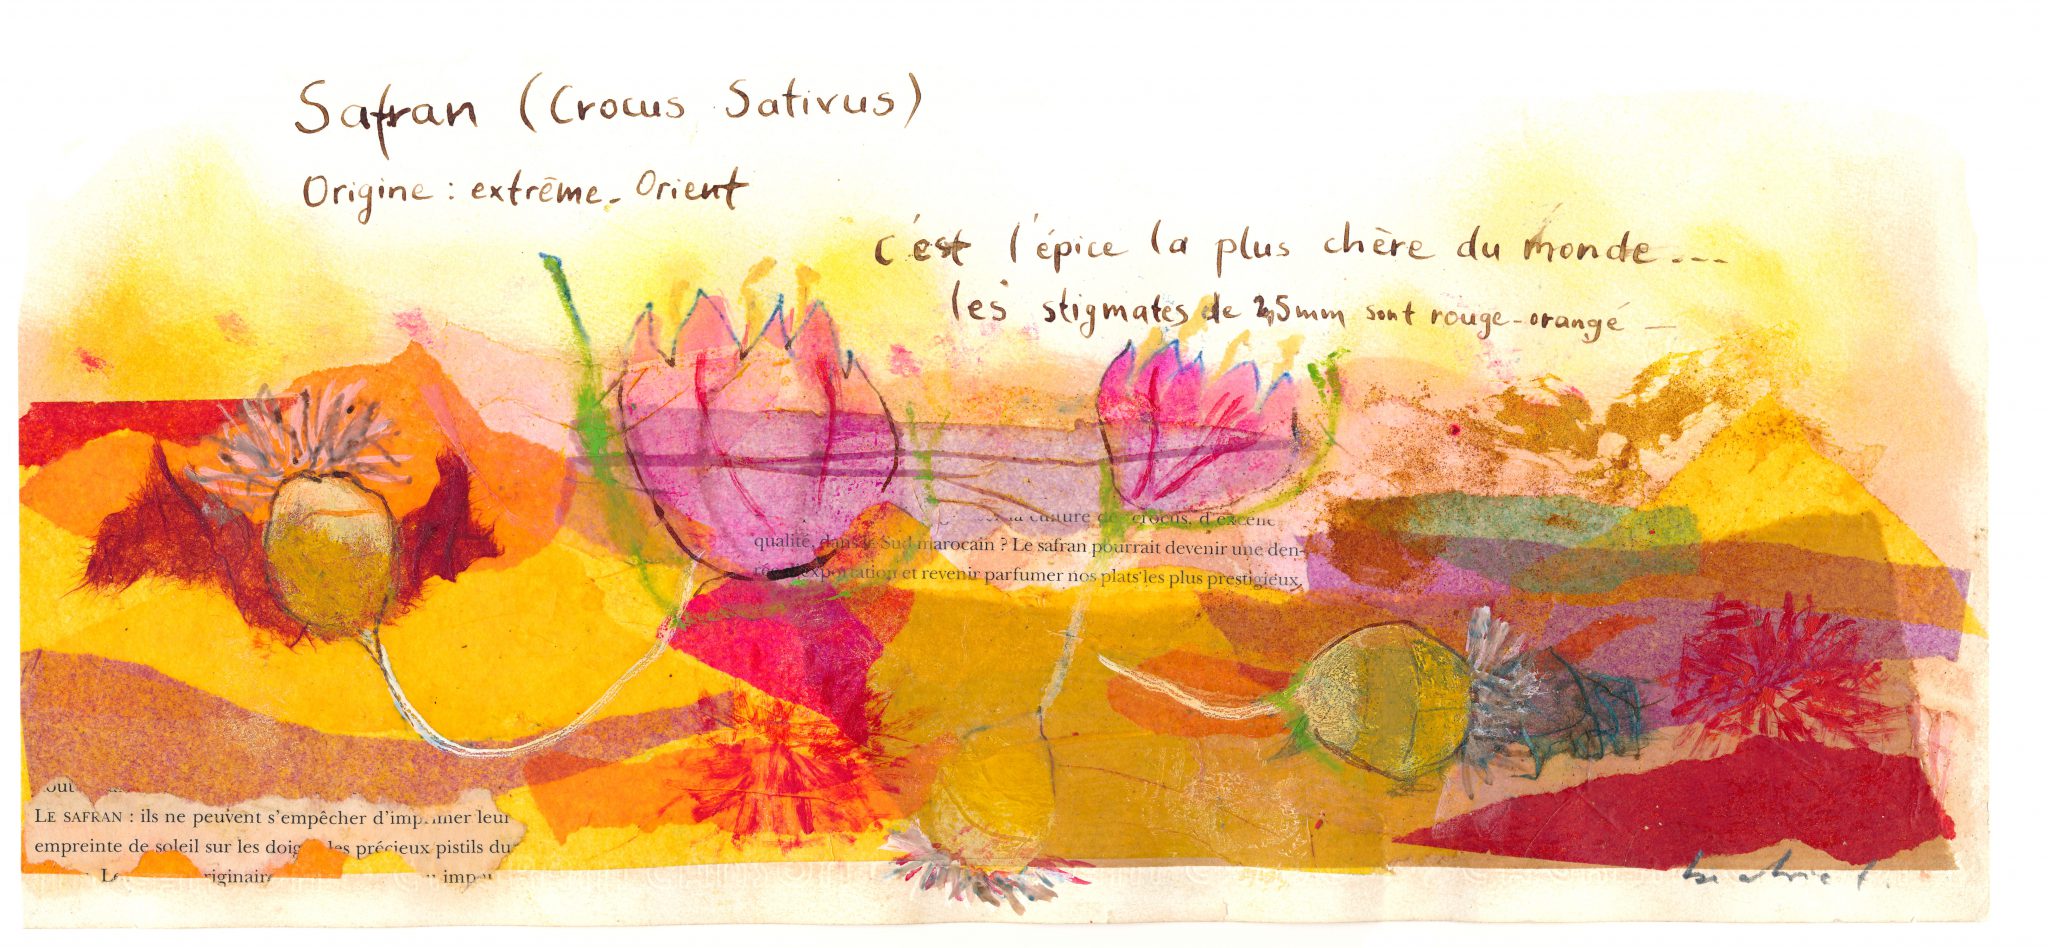 Safran (Crocus Sativus)
Origine : extrême-Orient
c'est l'épice la plus chère du monde...
les stigmates de 2,5mm sont rouge-orangé -
la culture de crocus, d'excell
qualité, dans le Sud marocain ? Le safran pourrait devenir une den-
exportation et revenir parfumer nos plats les plus prestigieux.
LE SAFRAN : ils ne peuvent s'empêcher d'imprimer leur
empreinte de soleil sur les doig les précieux pistils du